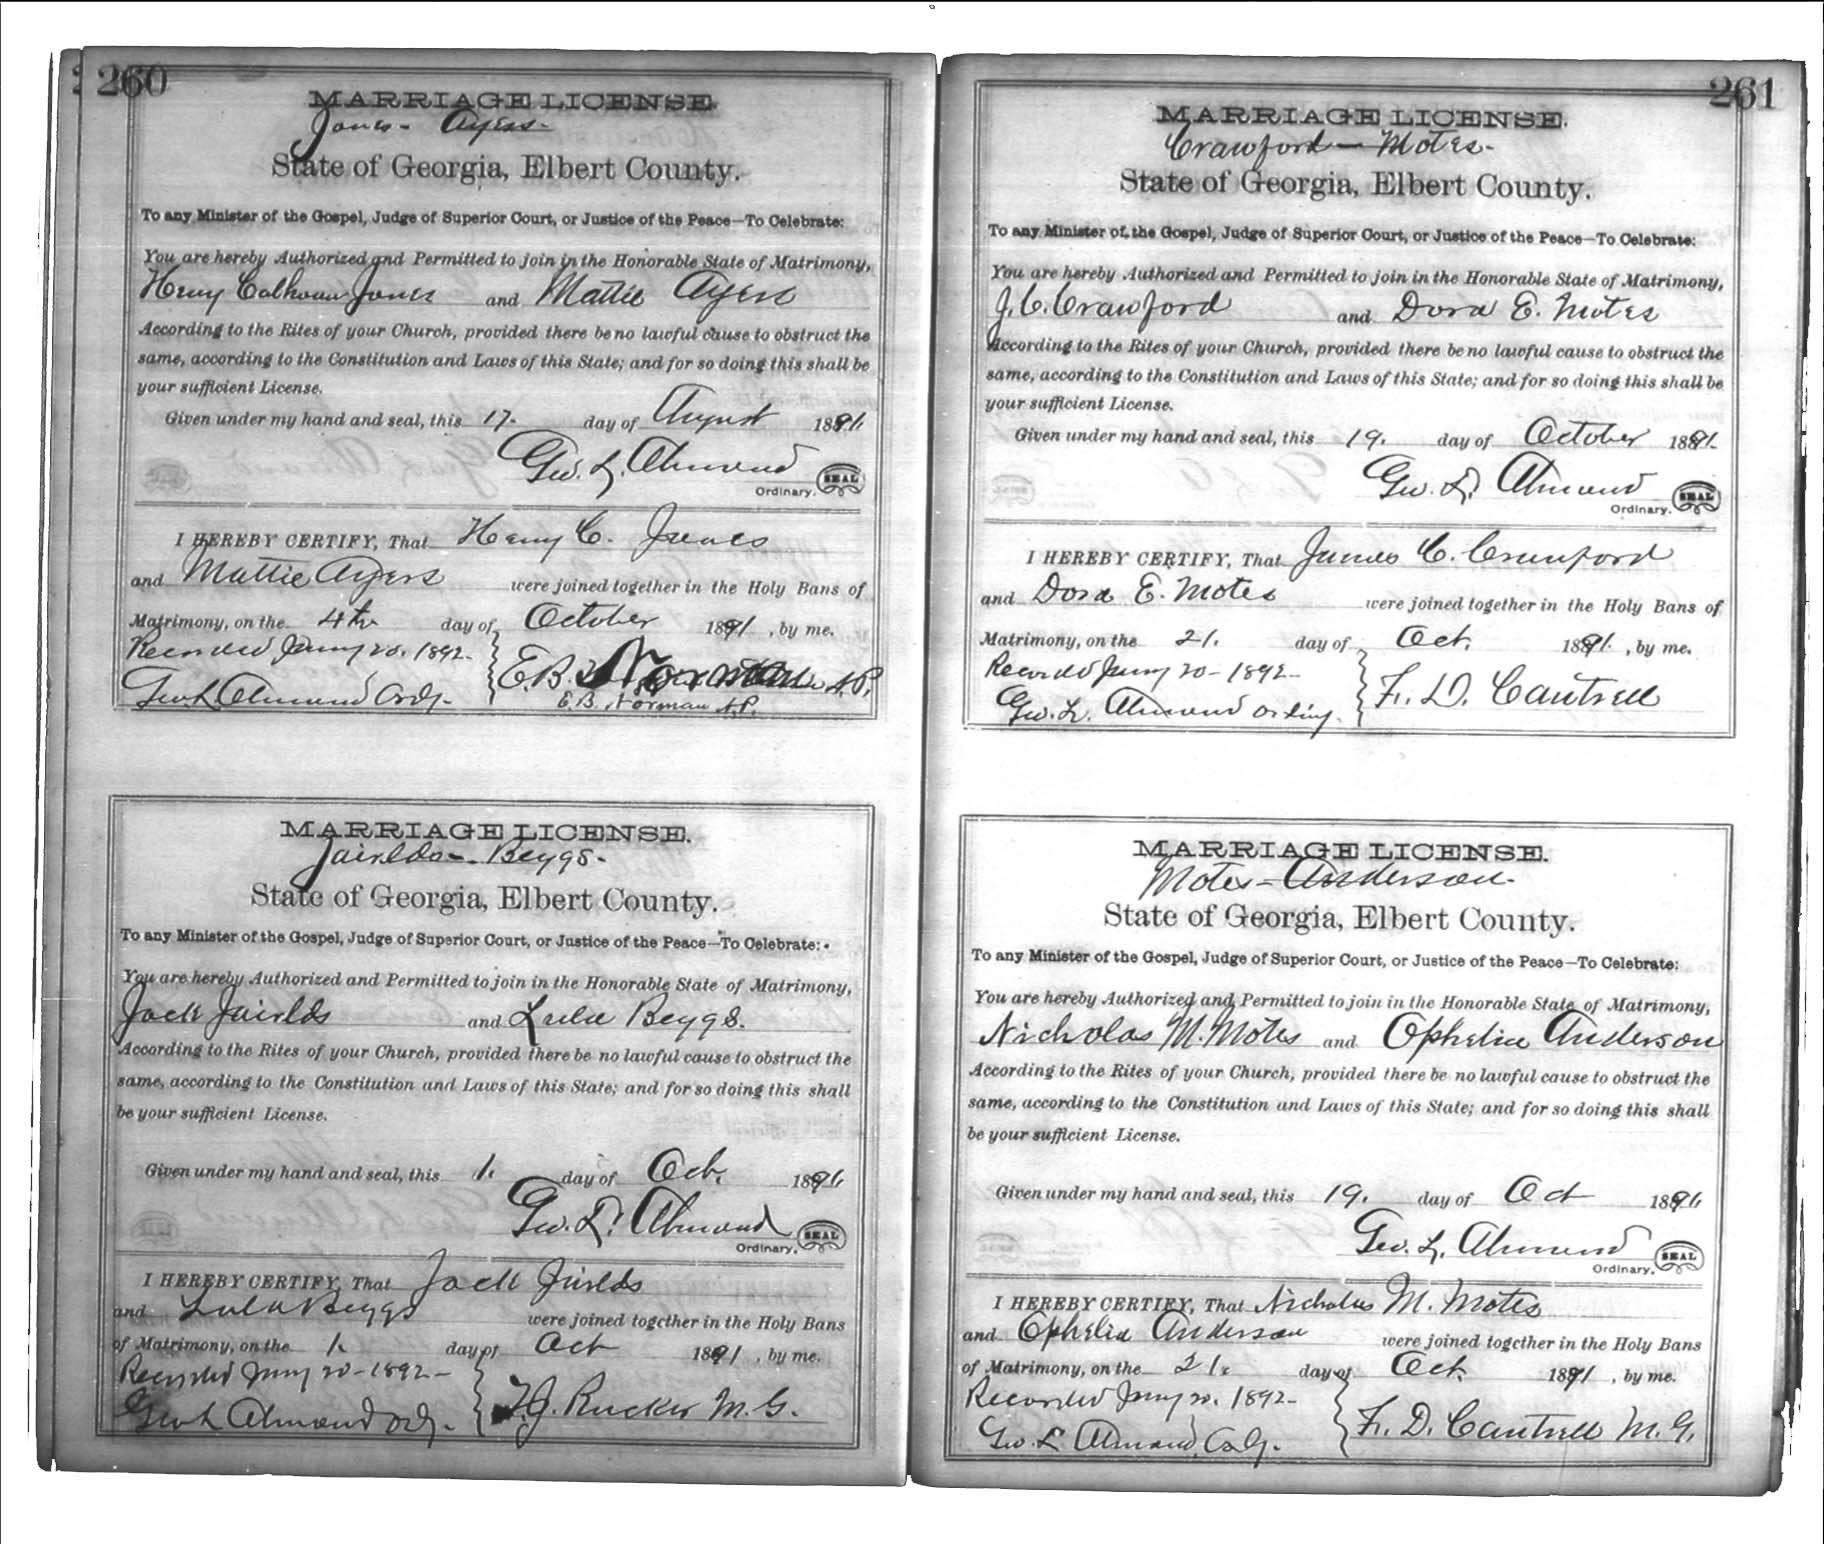 260
MARRIAGE LICENSE.
Jones - Ayers -
State of Georgia, Elbert County.
To any Minister of the Gospel, Judge of Superior Court, or Justice of the Peace—To Celebrate:
You are hereby Authorized and Permitted to join in the Honorable State of Matrimony,
Henry Calhoun Jones and Mattie Ayers
According to the Rites of your Church, provided there be no lawful cause to obstruct the
same, according to the Constitution and Laws of this State; and for so doing this shall be
your sufficient License.
Given under my hand and seal, this 17. day of August 1891.
Geo. L. Almond
Ordinary. SEAL
I HEREBY CERTIFY, That Henry C. Jones
and Mattie Ayers were joined together in the Holy Bans of
Matrimony, on the 4th day of October 1891, by me.
Recorded Jany 20. 1892.
E.B. Norman N.P.
Geo. L Almond Ordy.
E.B. Norman N.P.
MARRIAGE LICENSE.
Jairlds - Beggs -
State of Georgia, Elbert County.
To any Minister of the Gospel, Judge of Superior Court, or Justice of the Peace—To Celebrate:
You are hereby Authorized and Permitted to join in the Honorable State of Matrimony,
Jack Jairlds and Lula Beggs.
According to the Rites of your Church, provided there be no lawful cause to obstruct the
same, according to the Constitution and Laws of this State; and for so doing this shall
be your sufficient License.
Given under my hand and seal, this 1. day of Oct. 1891.
Geo. L. Almond
Ordinary. SEAL
I HEREBY CERTIFY, That Jack Jairlds
and Lula Beggs were joined together in the Holy Bans
of Matrimony, on the 1. day of Oct 1891, by me.
Recorded Jany 20 - 1892 -
Geo L Almond Ordy.
Rucker M.G.
261
MARRIAGE LICENSE.
Crawford - Motes -
State of Georgia, Elbert County.
To any Minister of the Gospel, Judge of Superior Court, or Justice of the Peace—To Celebrate:
You are hereby Authorized and Permitted to join in the Honorable State of Matrimony,
J. C. Crawford and Dora E. Motes
According to the Rites of your Church, provided there be no lawful cause to obstruct the
same, according to the Constitution and Laws of this State; and for so doing this shall be
your sufficient License.
Given under my hand and seal, this 19. day of October 1891.
Geo. L. Almond
Ordinary. SEAL
I HEREBY CERTIFY, That James C. Crawford
and Dora E. Motes were joined together in the Holy Bans of
Matrimony, on the 21. day of Oct. 1891, by me.
Recorded Jany 20 - 1892 -
F. D. Cantrell
Geo. L. Almond Ordiny.
MARRIAGE LICENSE.
Motes - Anderson -
State of Georgia, Elbert County.
To any Minister of the Gospel, Judge of Superior Court, or Justice of the Peace—To Celebrate:
You are hereby Authorized and Permitted to join in the Honorable State of Matrimony,
Nicholas M. Motes and Ophelia Anderson
According to the Rites of your Church, provided there be no lawful cause to obstruct the
same, according to the Constitution and Laws of this State; and for so doing this shall
be your sufficient License.
Given under my hand and seal, this 19. day of Oct 1891.
Geo. L. Almond
Ordinary. SEAL
I HEREBY CERTIFY, That Nicholas M. Motes
and Ophelia Anderson were joined together in the Holy Bans
of Matrimony, on the 21. day of Oct. 1891, by me.
Recorded Jany 20. 1892 -
F. D. Cantrell M.G.
Geo. L Almond, Ordy.